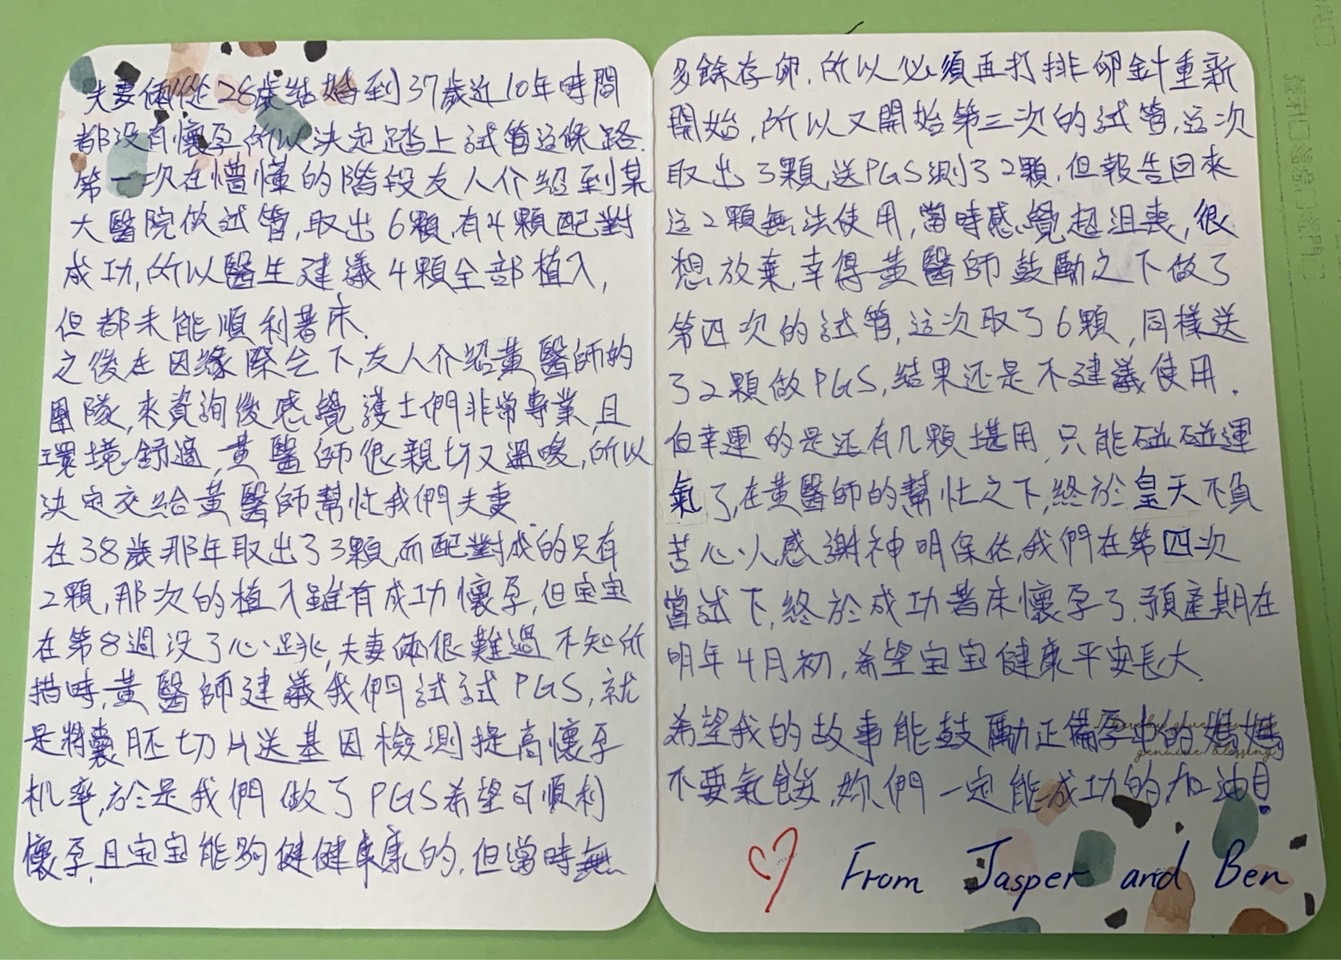 夫妻倆從28歲結婚到37歲近10年時間
都沒有懷孕所以決定踏上試管這條路.
第一次在懵懂的階段友人介紹到某
大醫院做試管,取出6顆,有4顆配對
成功,所以醫生建議4顆全部植入,
但都未能順利著床.
之後在因緣際会下,友人介紹黃醫師的
團隊,來資詢後感覺護士們非常專業,且
環境舒適,黃醫師很親切又溫暖,所以
決定交給黃醫師幫忙我們夫妻
在38歲那年取出了3顆,而配對成的只有
2顆,那次的植入雖有成功懷孕,但宝宝
在第8週没了心跳,夫妻倆很難過不知所
措時,黃醫師建議我們試試PGS,就
是將囊胚切片送基因檢測提高懷孕
机率,於是我們做了PGS希望可順利
懷孕,且宝宝能夠健健康康的,但當時無
多餘存卵,所以必須再打排卵針重新
開始,所以又開始第三次的試管,這次
取出3顆,送PGS測了2顆,但報告回來
這2顆無法使用,當時感覺超沮喪,很
想放棄,幸得黃醫師鼓勵之下做了
第四次的試管,這次取了6顆,同樣送
了2顆做PGS,結果还是不建議使用.
但幸運的是还有几顆堪用,只能碰碰運
氣了,在黃醫師的幫忙之下,終於皇天不負
苦心人感謝神明保佑,我們在第四次
嘗試下,終於成功著床懷孕了,預產期在
明年4月初,希望宝宝健康平安長大.
希望我的故事能鼓勵正備孕中的媽媽
不要氣餒,妳們一定能成功的,加油!
genuine blessing
From Jasper and Ben